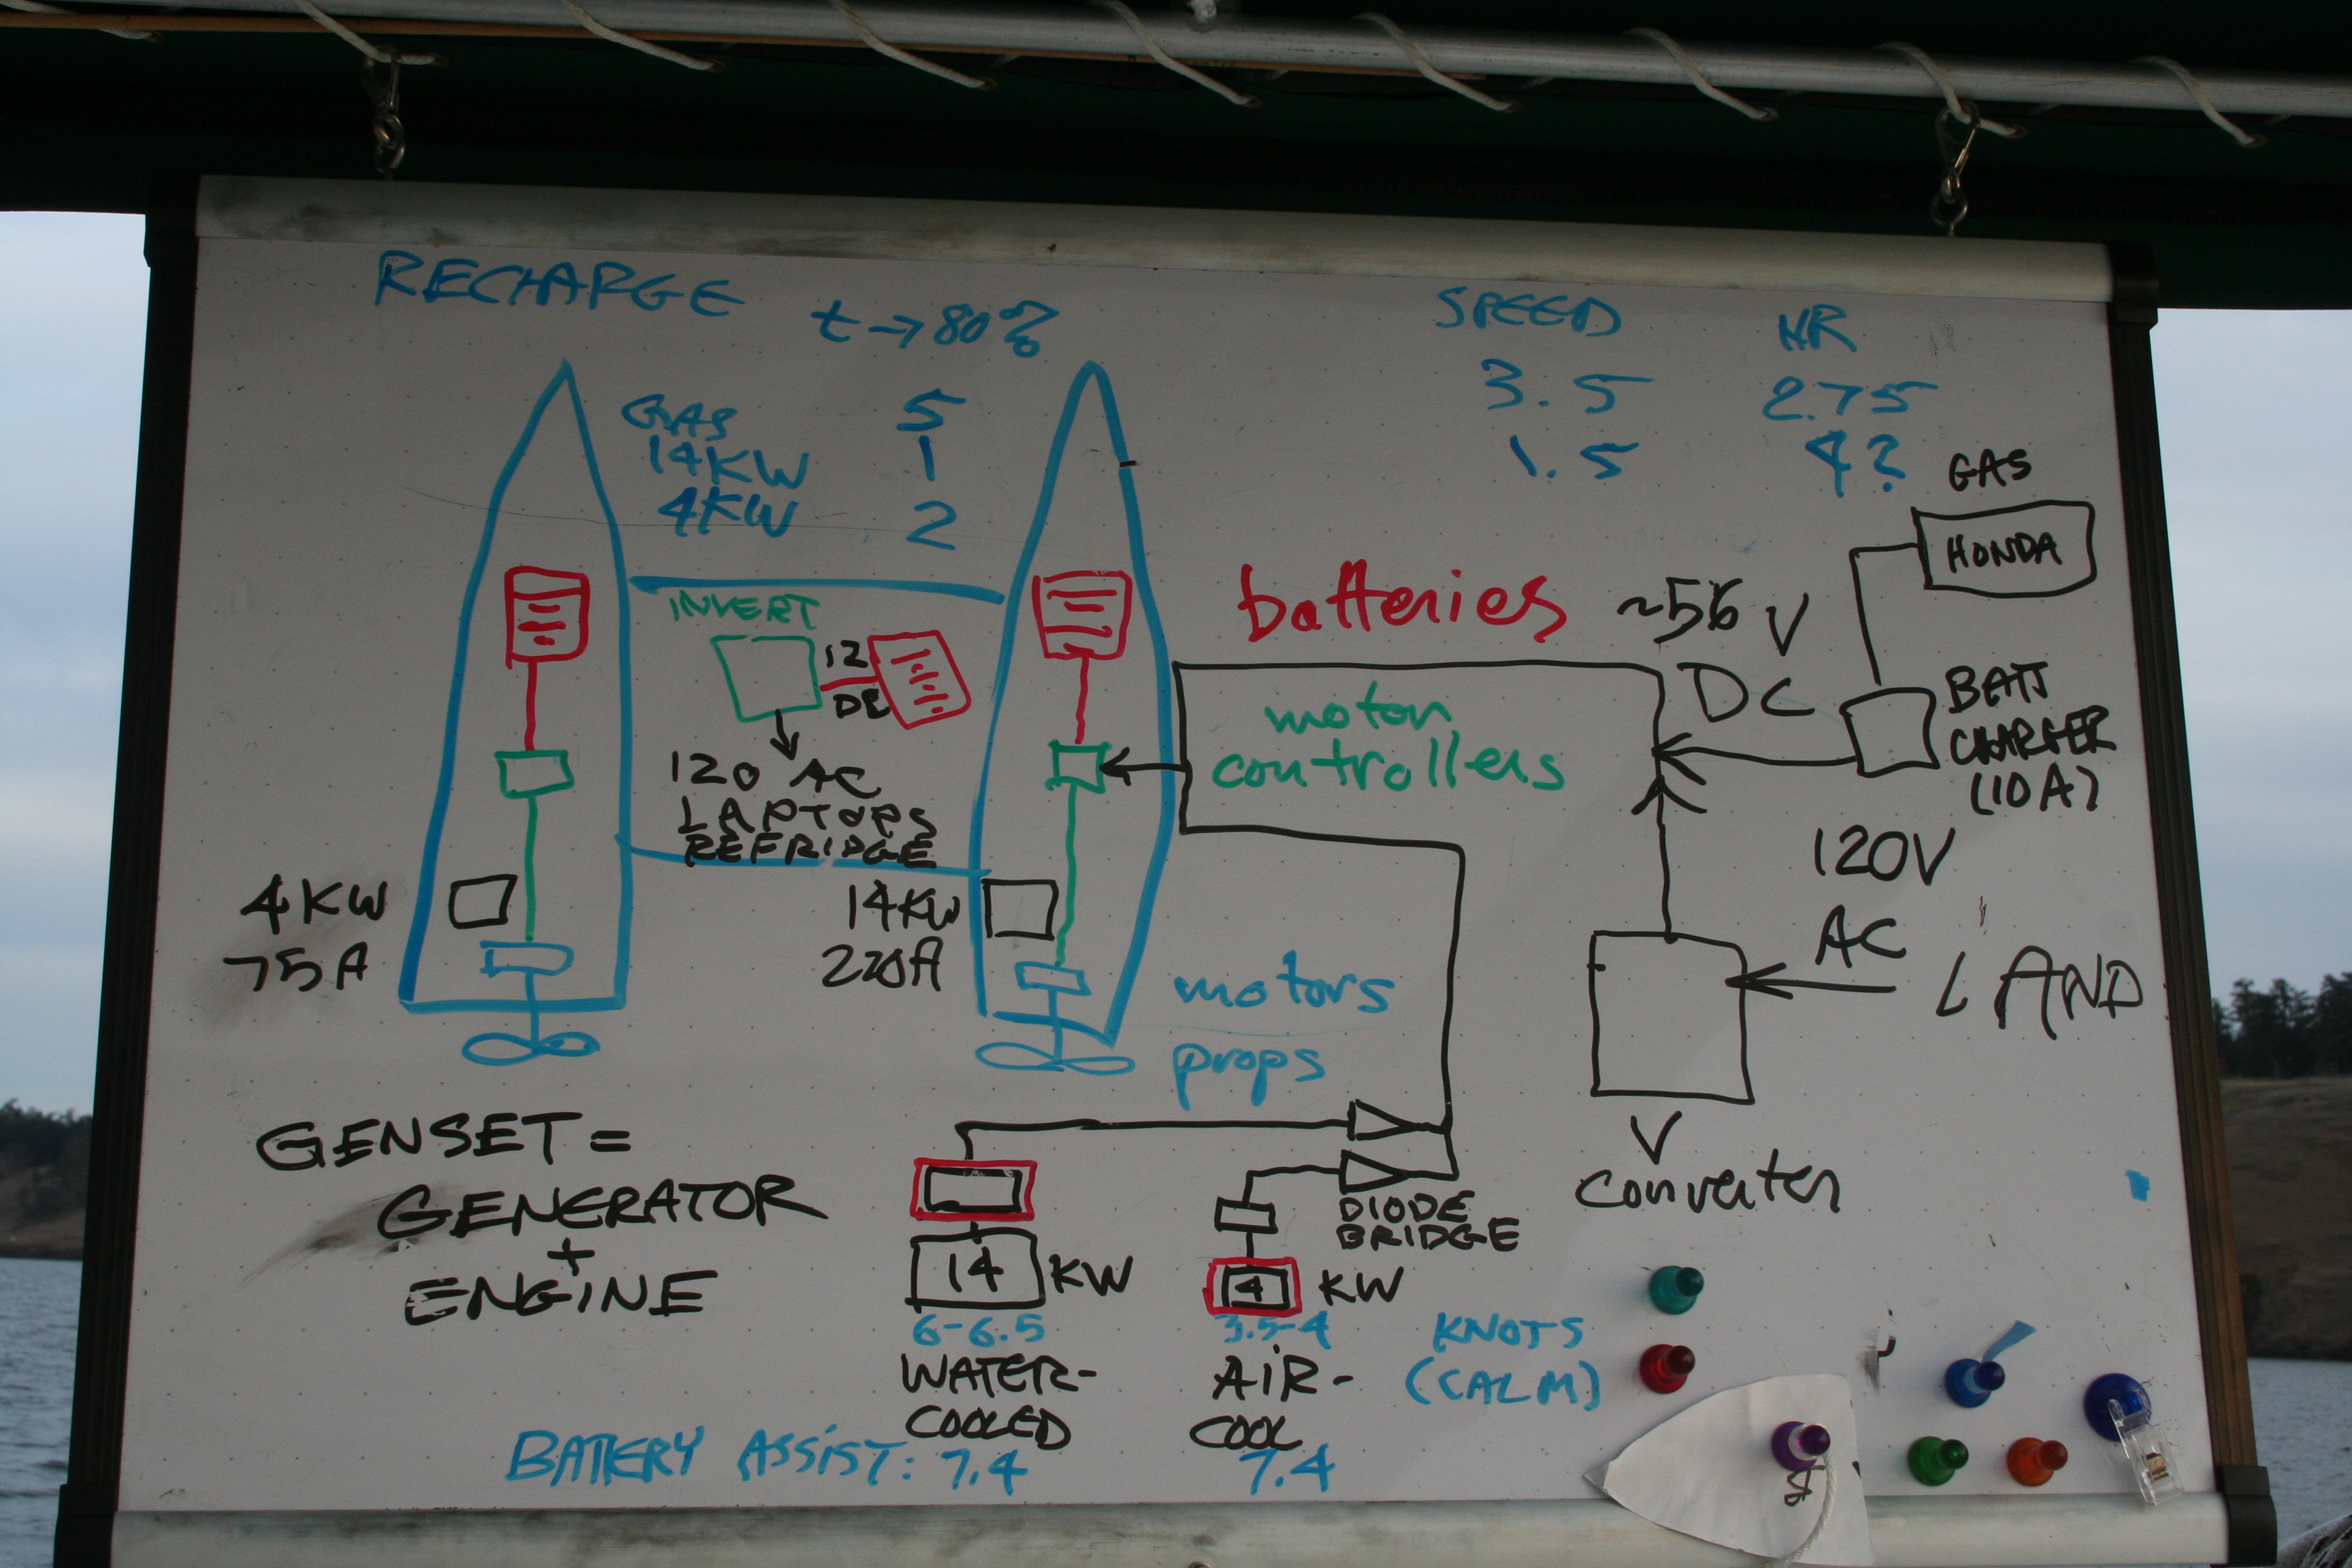 RECHARGE t → 80%
GAS 5
14KW 1
4KW 2
SPEED HR
3.5 2.75
1.5 4?
GAS
HONDA
batteries ~56 V
DC
BATT
CHARGER
(10A)
INVERT
12
DC
120 AC
LAPTOPS
REFRIDGE
motor
controllers
4KW
75A
14KW
220A
motors
props
120V
AC
LAND
V
Converter
GENSET =
GENERATOR
+
ENGINE
DIODE
BRIDGE
14 KW
4 KW
6-6.5 3.5-4 KNOTS
(CALM)
WATER-
COOLED
AIR-
COOL
BATTERY ASSIST: 7.4 7.4